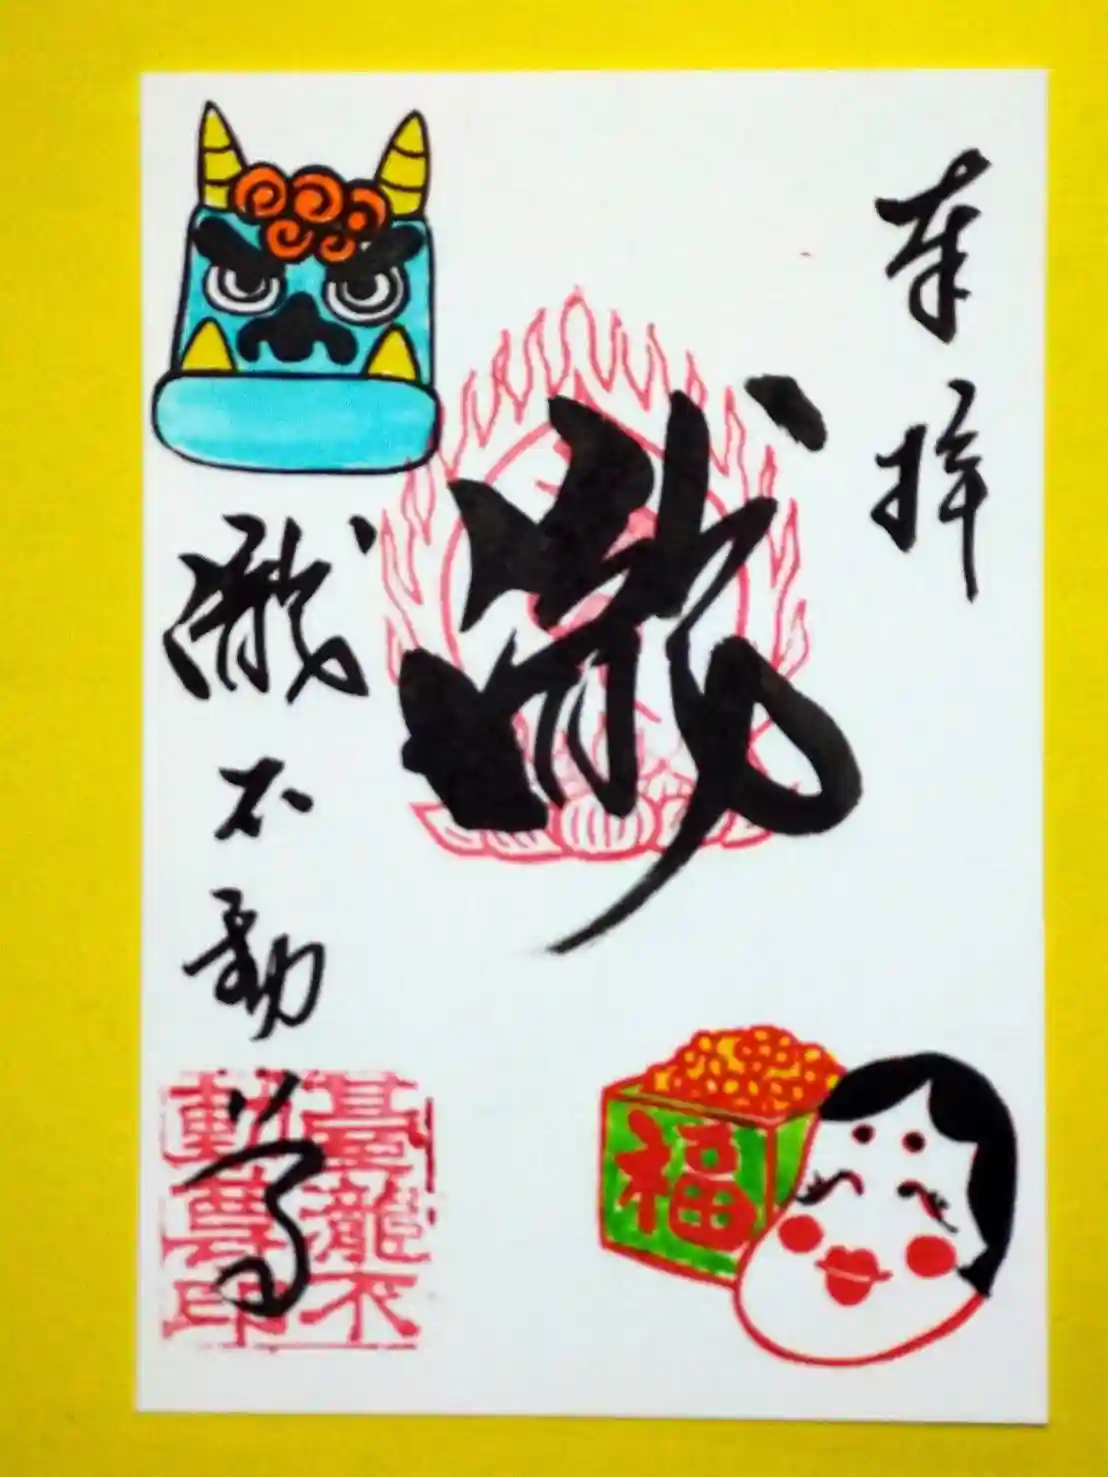 奉拝
瀧
瀧不動尊
臺瀧不
動尊印
福